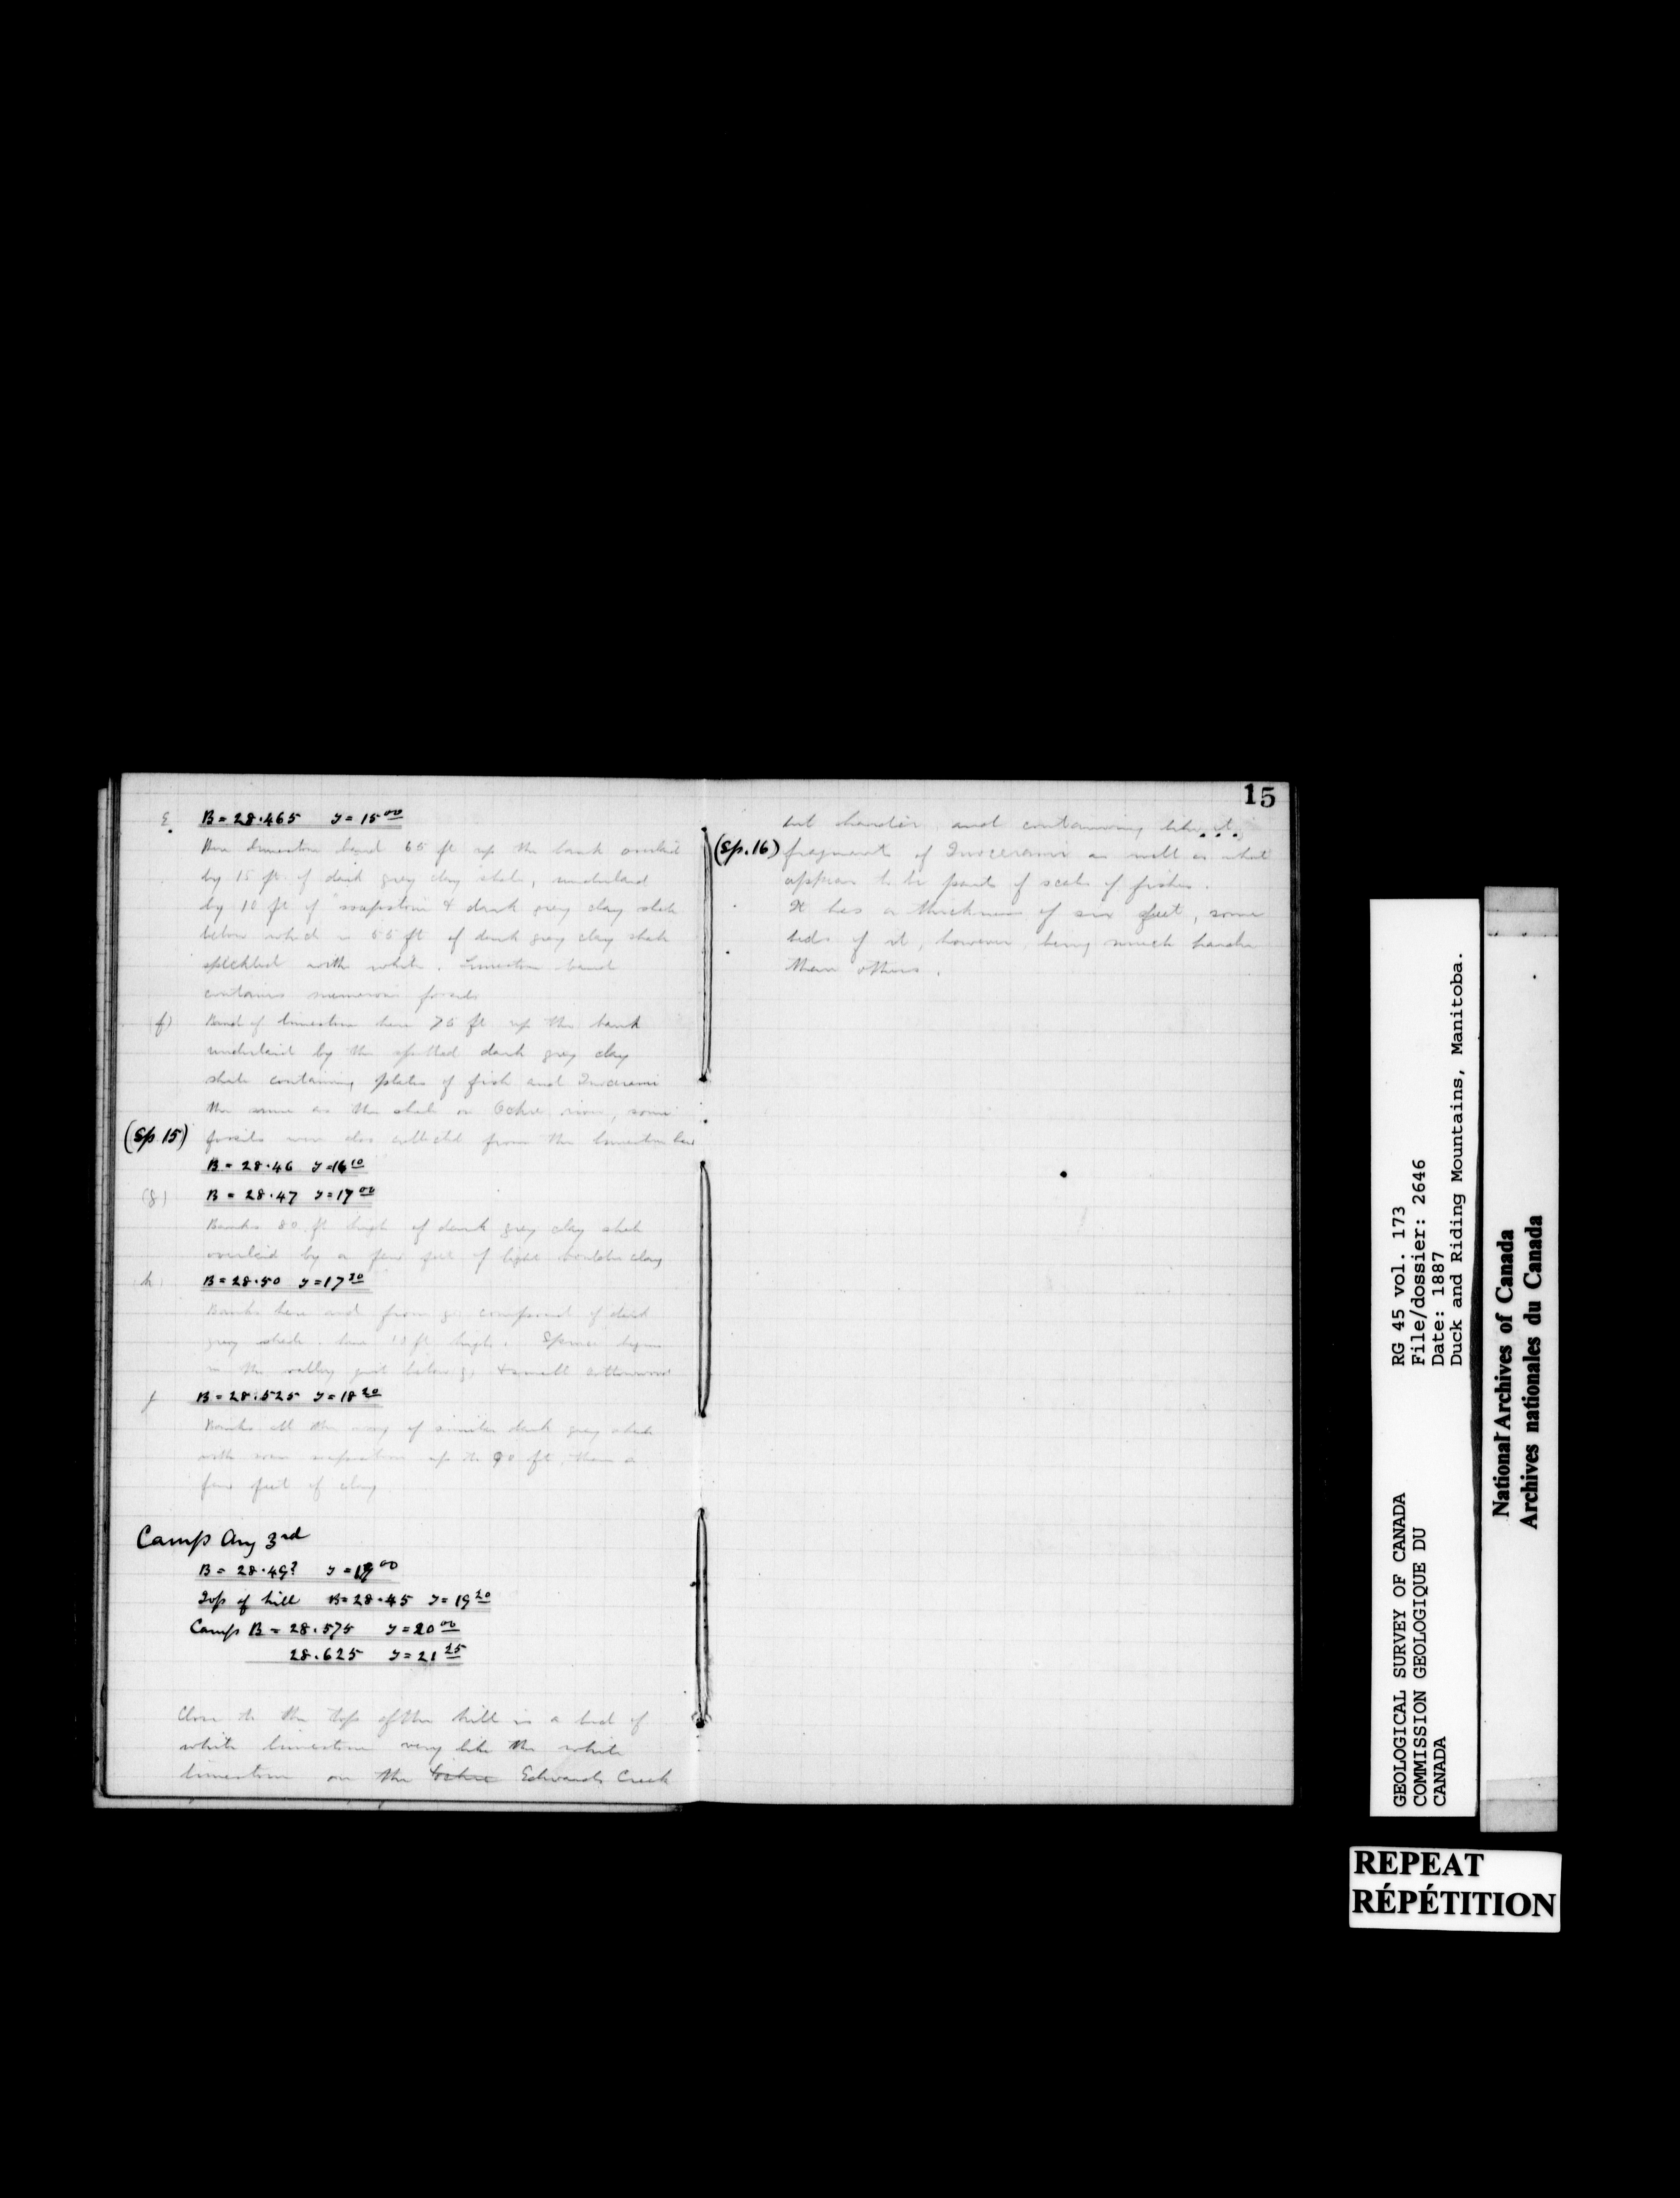 15
E. B = 28.465 T = 15 00
Here limestone band 65 ft up the bank overlaid
by 15 ft of dark grey clay shale, underlaid
by 10 ft of soapstone & dark grey clay shale
below which is 55 ft of dark grey clay shale
speckled with white. Limestone band
contains numerous fossils
f) Band of limestone here 75 ft up the bank
underlaid by the spotted dark grey clay
shale containing plates of fish and Inocerami
the same as the shale on Ochre river, some
(Sp 15) fossils were also collected from the limestone here
B = 28.46 T = 16 10
(g) B = 28.47 T = 17 00
Banks 80 ft high of dark grey clay shale
overlaid by a few feet of light boulder clay
h. B = 28.50 T = 17 30
Banks here and from g. composed of dark
grey shale. here ft high. Spruce begins
in the valley just below g. & small cottonwood
j B = 28.525 T = 18 20
Banks all the way of similar dark grey shale
with up to 90 ft, then a
few feet of clay
Camp Aug 3rd
B = 28.49? T = 19 00
Top of hill B = 28.45 T = 19 20
Camp B = 28.575 T = 20 00
28.625 T = 21 25
Close to the top of the hill is a bed of
white limestone very like the white
limestone on the Ochre Edwards Creek
but harder and containing like it
(Sp. 16) fragments of Inocerami as well as what
appear to be parts of scales of fishes.
It has a thickness of six feet, some
beds of it, however, being much harder
than others.
RG 45 vol. 173
File/dossier: 2646
Date: 1887
Duck and Riding Mountains, Manitoba.
GEOLOGICAL SURVEY OF CANADA
COMMISSION GEOLOGIQUE DU
CANADA
National Archives of Canada
Archives nationales du Canada
REPEAT
RÉPÉTITION